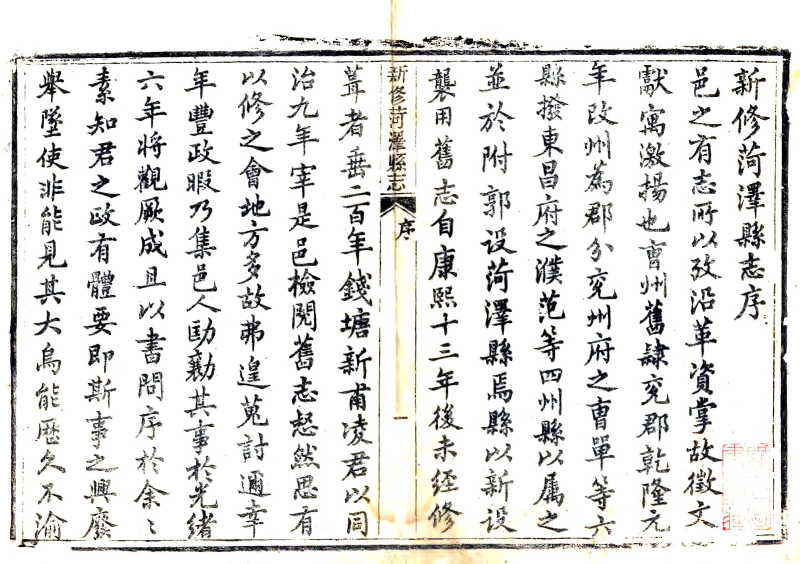 新修菏澤縣志序
邑之有志所以攷沿革資掌故徵文
獻寓激揚也曹州舊隷兖郡乾隆元
年改州為郡分兖州府之曹單等六
縣撥東昌府之濮范等四州縣以属之
並於附郭設菏澤縣焉縣以新設
襲用舊志自康熙十三年後未經修
新修菏澤縣志
序
一
葺者垂二百年錢塘新甫凌君以同
治九年宰是邑檢閱舊志怒然思有
以修之會地方多故弗遑蒐討邇幸
年豐政暇乃集邑人勷其事於光緒
六年將觀厥成且以書問序於余〻
素知君之政有體要即斯事之興廢
舉墜使非能見其大烏能歷久不渝